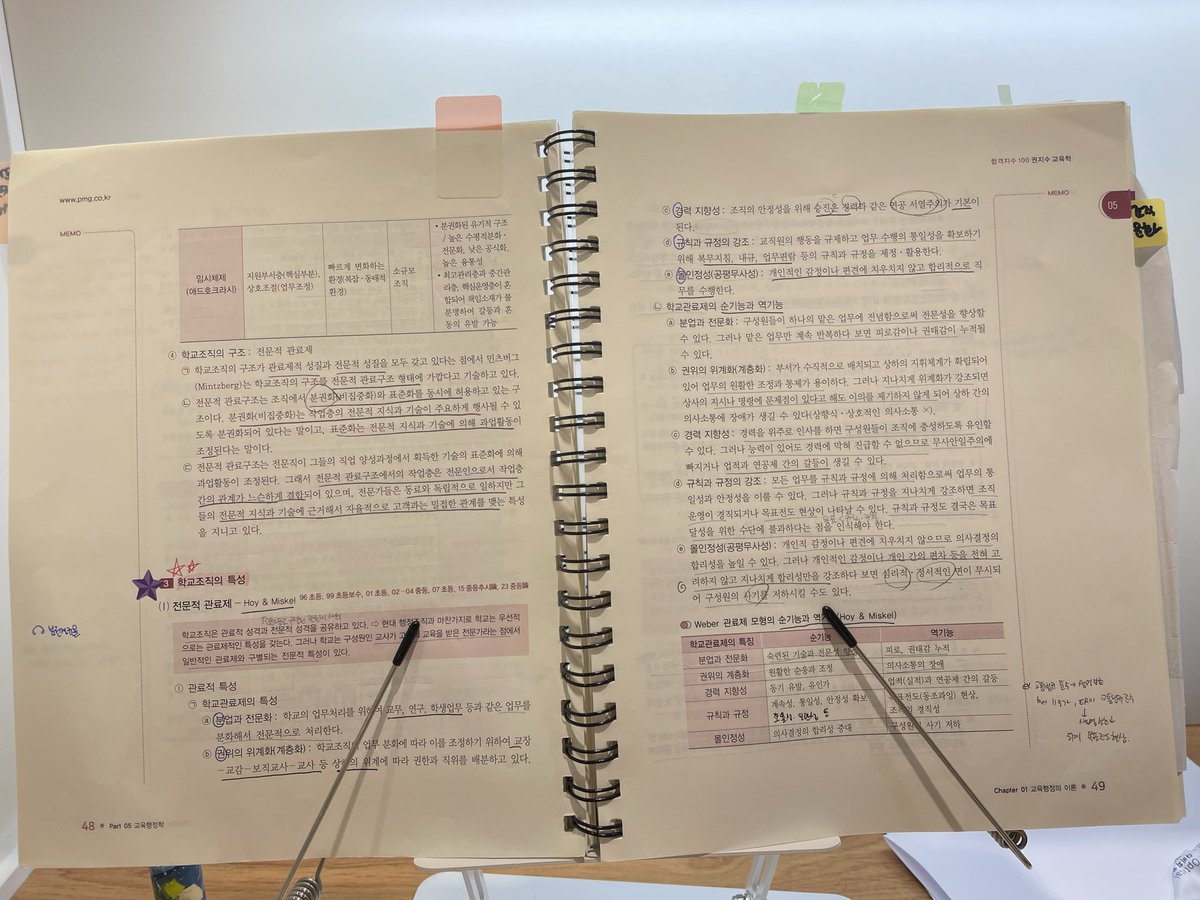 www.pmg.co.kr
MEMO
임시체제
(애드호크라시)
지원부서층(핵심부분),
상호조절(업무조정)
빠르게 변화하는
환경(복잡·동태적
환경)
소규모
조직
• 분권화된 유기적 구조
/ 높은 수평적분화·
전문화, 낮은 공식화,
높은 융통성
• 최고관리층과 중간관
리층, 핵심운영층이 혼
합되어 책임소재가 불
분명하여 갈등과 혼
동의 유발 가능
④ 학교조직의 구조 : 전문적 관료제
㉠ 학교조직의 구조가 관료제적 성질과 전문적 성질을 모두 갖고 있다는 점에서 민츠버그
(Mintzberg)는 학교조직의 구조를 전문적 관료구조 형태에 가깝다고 기술하고 있다.
㉡ 전문적 관료구조는 조직에서 분권화(비집중화)와 표준화를 동시에 허용하고 있는 구
조이다. 분권화(비집중화)는 작업층의 전문적 지식과 기술이 주요하게 행사될 수 있
도록 분권화되어 있다는 말이고, 표준화는 전문적 지식과 기술에 의해 과업활동이
조정된다는 말이다.
㉢ 전문적 관료구조는 전문직이 그들의 직업 양성과정에서 획득한 기술의 표준화에 의해
과업활동이 조정된다. 그래서 전문적 관료구조에서의 작업층은 전문인으로서 작업층
간의 관계가 느슨하게 결합되어 있으며, 전문가들은 동료와 독립적으로 일하지만 그
들의 전문적 지식과 기술에 근거해서 자율적으로 고객과는 밀접한 관계를 맺는 특성
을 지니고 있다.
3 학교조직의 특성
(1) 전문적 관료제 – Hoy & Miskel 96 초등, 99 초등보수, 01 초등, 02~04 중등, 07 초등, 15 중등추시論, 23 중등論
학교조직은 관료적 성격과 전문적 성격을 공유하고 있다. ⇨ 현대 행정조직과 마찬가지로 학교는 우선적
으로는 관료제적인 특징을 갖는다. 그러나 학교는 구성원인 교사가 교육을 받은 전문가라는 점에서
일반적인 관료제와 구별되는 전문적 특성이 있다.
① 관료적 특성
㉠ 학교관료제의 특성
ⓐ 분업과 전문화 : 학교의 업무처리를 위하여 교무, 연구, 학생업무 등과 같은 업무를
분화해서 전문적으로 처리한다.
ⓑ 권위의 위계화(계층화) : 학교조직의 업무 분화에 따라 이를 조정하기 위하여 교장
–교감–보직교사–교사 등 상하의 위계에 따라 권한과 직위를 배분하고 있다.
48 • Part 05 교육행정학
합격지수 100 권지수 교육학
MEMO
05
ⓒ 경력 지향성 : 조직의 안정성을 위해 승진은 경력과 같은 연공 서열주의가 기본이
된다.
ⓓ 규칙과 규정의 강조 : 교직원의 행동을 규제하고 업무 수행의 통일성을 확보하기
위해 복무지침, 내규, 업무편람 등의 규칙과 규정을 제정·활용한다.
ⓔ 몰인정성(공평무사성) : 개인적인 감정이나 편견에 치우치지 않고 합리적으로 직
무를 수행한다.
㉡ 학교관료제의 순기능과 역기능
ⓐ 분업과 전문화 : 구성원들이 하나의 맡은 업무에 전념함으로써 전문성을 향상할
수 있다. 그러나 맡은 업무만 계속 반복하다 보면 피로감이나 권태감이 누적될
수 있다.
ⓑ 권위의 위계화(계층화) : 부서가 수직적으로 배치되고 상하의 지휘체계가 확립되어
있어 업무의 원활한 조정과 통제가 용이하다. 그러나 지나치게 위계화가 강조되면
상사의 지시나 명령에 문제점이 있다고 해도 이의를 제기하지 않게 되어 상하 간의
의사소통에 장애가 생길 수 있다(상향식·상호적인 의사소통 ×).
ⓒ 경력 지향성 : 경력을 위주로 인사를 하면 구성원들이 조직에 충성하도록 유인할
수 있다. 그러나 능력이 있어도 경력에 막혀 진급할 수 없으므로 무사안일주의에
빠지거나 업적과 연공제 간의 갈등이 생길 수 있다.
ⓓ 규칙과 규정의 강조 : 모든 업무를 규칙과 규정에 의해 처리함으로써 업무의 통
일성과 안정성을 이룰 수 있다. 그러나 규칙과 규정을 지나치게 강조하면 조직
운영이 경직되거나 목표전도 현상이 나타날 수 있다. 규칙과 규정도 결국은 목표
달성을 위한 수단에 불과하다는 점을 인식해야 한다.
ⓔ 몰인정성(공평무사성) : 개인적 감정이나 편견에 치우치지 않으므로 의사결정의
합리성을 높일 수 있다. 그러나 개인적인 감정이나 개인 간의 편차 등을 전혀 고
려하지 않고 지나치게 합리성만을 강조하다 보면 심리적·정서적인 면이 무시되
어 구성원의 사기를 저하시킬 수도 있다.
Weber 관료제 모형의 순기능과 역기능(Hoy & Miskel)
학교관료제의 특징 순기능 역기능
분업과 전문화 숙련된 기술과 전문성 향상 피로, 권태감 누적
권위의 계층화 원활한 순응과 조정 의사소통의 장애
경력 지향성 동기 유발, 유인가 업적(실적)과 연공제 간의 갈등
규칙과 규정 계속성, 통일성, 안정성 확보 목표전도(동조과잉) 현상,
조직의 경직성
몰인정성 의사결정의 합리성 증대 구성원의 사기 저하
Chapter 01 교육행정의 이론 • 49